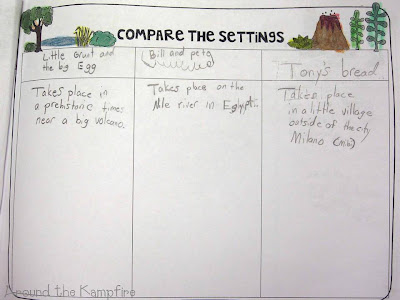 COMPARE THE SETTINGS
Little Grunt and
the big Egg
Takes place in
a prehistoric times
near a big volcano.
Bill and pete
Takes place on the
Nile river in Egypt.
Tony's bread
Takes place
in a little village
outside of the city
Milano
Around the Kampfire